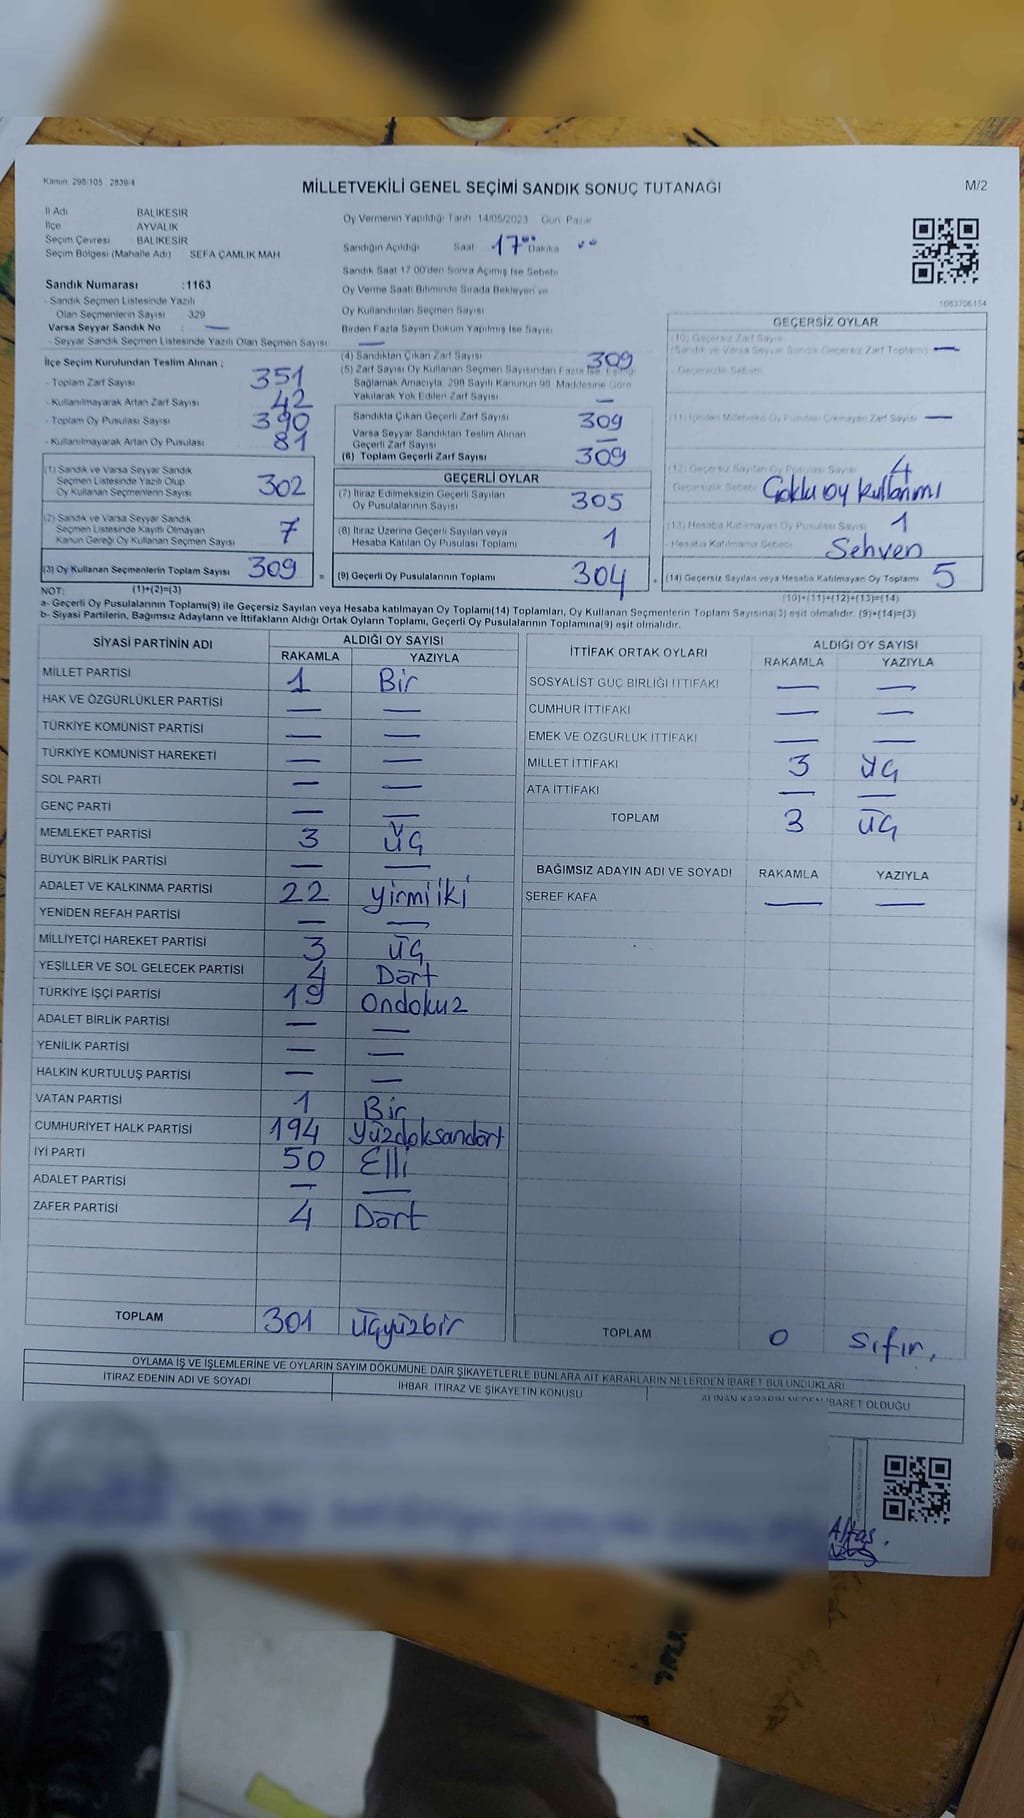 Kanun: 298/105 2839/4
MİLLETVEKİLİ GENEL SEÇİMİ SANDIK SONUÇ TUTANAĞI
M/2
İl Adı BALIKESİR
İlçe AYVALIK
Seçim Çevresi BALIKESİR
Seçim Bölgesi (Mahalle Adı) SEFA ÇAMLIK MAH
Sandık Numarası :1163
- Sandık Seçmen Listesinde Yazılı
Olan Seçmenlerin Sayısı 329
Varsa Seyyar Sandık No : —
- Seyyar Sandık Seçmen Listesinde Yazılı Olan Seçmen Sayısı —
Oy Vermenin Yapıldığı Tarih 14/05/2023 Gün Pazar
Sandığın Açıldığı Saat 17 00 Dakika 00
Sandık Saat 17 00'den Sonra Açımış İse Sebebi
Oy Verme Saati Bitiminde Sırada Bekleyen ve
Oy Kullandırılan Seçmen Sayısı
Birden Fazla Sayım Döküm Yapılmış İse Sayısı
1083706154
İlçe Seçim Kurulundan Teslim Alınan ;
- Toplam Zarf Sayısı 351
- Kullanılmayarak Artan Zarf Sayısı 42
- Toplam Oy Pusulası Sayısı 390
- Kullanılmayarak Artan Oy Pusulası 81
(1) Sandık ve Varsa Seyyar Sandık
Seçmen Listesinde Yazılı Olup
Oy Kullanan Seçmenlerin Sayısı 302
(2) Sandık ve Varsa Seyyar Sandık
Seçmen Listesinde Kayıtlı Olmayan
Kanun Gereği Oy Kullanan Seçmen Sayısı 7
(3) Oy Kullanan Seçmenlerin Toplam Sayısı 309 =
(4) Sandıktan Çıkan Zarf Sayısı 309
(5) Zarf Sayısı Oy Kullanan Seçmen Sayısından Fazla İse, Eşitliği
Sağlamak Amacıyla, 298 Sayılı Kanunun 98. Maddesine Göre
Yakılarak Yok Edilen Zarf Sayısı —
Sandıkta Çıkan Geçerli Zarf Sayısı 309
Varsa Seyyar Sandıktan Teslim Alınan
Geçerli Zarf Sayısı —
(6) Toplam Geçerli Zarf Sayısı 309
GEÇERLİ OYLAR
(7) İtiraz Edilmeksizin Geçerli Sayılan
Oy Pusulalarının Sayısı 305
(8) İtiraz Üzerine Geçerli Sayılan veya
Hesaba Katılan Oy Pusulası Toplamı 1
(9) Geçerli Oy Pusulalarının Toplamı 304 +
GEÇERSİZ OYLAR
(10) Geçersiz Zarf Sayısı
(Sandık ve Varsa Seyyar Sandık Geçersiz Zarf Toplamı) —
- Geçersizlik Sebebi
(11) İçinden Milletvekili Oy Pusulası Çıkmayan Zarf Sayısı —
(12) Geçersiz Sayılan Oy Pusulası Sayısı 4
- Geçersizlik Sebebi Çoklu oy kullanımı
(13) Hesaba Katılmayan Oy Pusulası Sayısı 1
- Hesaba Katılmama Sebebi Sehven
(14) Geçersiz Sayılan veya Hesaba Katılmayan Oy Toplamı 5
NOT: (1)+(2)=(3)
(10)+(11)+(12)+(13)=(14)
a- Geçerli Oy Pusulalarının Toplamı(9) ile Geçersiz Sayılan veya Hesaba katılmayan Oy Toplamı(14) Toplamları, Oy Kullanan Seçmenlerin Toplam Sayısına(3) eşit olmalıdır. (9)+(14)=(3)
b- Siyasi Partilerin, Bağımsız Adayların ve İttifakların Aldığı Ortak Oyların Toplamı, Geçerli Oy Pusulalarının Toplamına(9) eşit olmalıdır.
SİYASİ PARTİNİN ADI ALDIĞI OY SAYISI
RAKAMLA YAZIYLA
MİLLET PARTİSİ 1 Bir
HAK VE ÖZGÜRLÜKLER PARTİSİ — —
TÜRKİYE KOMÜNİST PARTİSİ — —
TÜRKİYE KOMÜNİST HAREKETİ — —
SOL PARTİ — —
GENÇ PARTİ — —
MEMLEKET PARTİSİ 3 Üç
BÜYÜK BİRLİK PARTİSİ — —
ADALET VE KALKINMA PARTİSİ 22 yirmi iki
YENİDEN REFAH PARTİSİ — —
MİLLİYETÇİ HAREKET PARTİSİ 3 Üç
YEŞİLLER VE SOL GELECEK PARTİSİ 4 Dört
TÜRKİYE İŞÇİ PARTİSİ 19 Ondokuz
ADALET BİRLİK PARTİSİ — —
YENİLİK PARTİSİ — —
HALKIN KURTULUŞ PARTİSİ — —
VATAN PARTİSİ 1 Bir
CUMHURİYET HALK PARTİSİ 194 Yüzdoksandört
İYİ PARTİ 50 Elli
ADALET PARTİSİ — —
ZAFER PARTİSİ 4 Dört
TOPLAM 301 Üçyüzbir
İTTİFAK ORTAK OYLARI ALDIĞI OY SAYISI
RAKAMLA YAZIYLA
SOSYALİST GÜÇ BİRLİĞİ İTTİFAKI — —
CUMHUR İTTİFAKI — —
EMEK VE ÖZGÜRLÜK İTTİFAKI — —
MİLLET İTTİFAKI 3 Üç
ATA İTTİFAKI — —
TOPLAM 3 Üç
BAĞIMSIZ ADAYIN ADI VE SOYADI RAKAMLA YAZIYLA
ŞEREF KAFA — —
TOPLAM 0 Sıfır.
OYLAMA İŞ VE İŞLEMLERİNE VE OYLARIN SAYIM DÖKÜMÜNE DAİR ŞİKAYETLERLE BUNLARA AİT KARARLARIN NELERDEN İBARET BULUNDUKLARI
İTİRAZ EDENİN ADI VE SOYADI İHBAR, İTİRAZ VE ŞİKAYETİN KONUSU ALINAN KARARIN NEDEN İBARET OLDUĞU
Altaş.